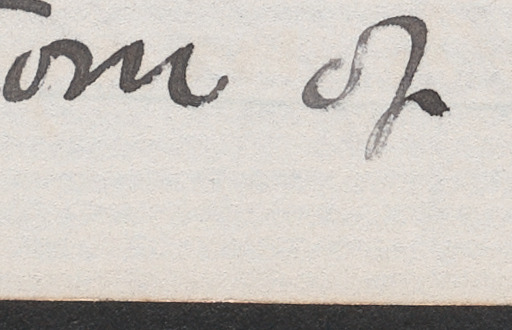 tom of